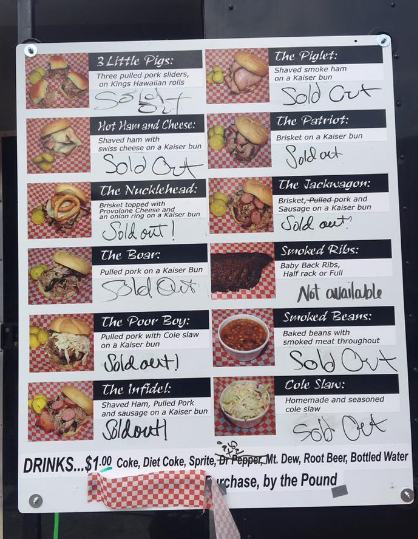 3 Little Pigs:
Three pulled pork sliders,
on Kings Hawaiian rolls
Sold out
The Piglet:
Shaved smoke ham
on a Kaiser bun
Sold Out
Hot Ham and Cheese:
Shaved ham with
swiss cheese on a Kaiser bun
Sold Out
The Patriot:
Brisket on a Kaiser bun
Sold out
The Nucklehead:
Brisket topped with
Provolone Cheese and
an onion ring on a Kaiser bun
Sold out!
The Jackwagon:
Brisket, Pulled pork and
Sausage on a Kaiser bun
Sold out!
The Boar:
Pulled pork on a Kaiser Bun
Sold Out
Smoked Ribs:
Baby Back Ribs,
Half rack or Full
Not available
The Poor Boy:
Pulled pork with Cole slaw
on a Kaiser bun
Sold out!
Smoked Beans:
Baked beans with
smoked meat throughout
Sold Out
The Infidel:
Shaved Ham, Pulled Pork
and sausage on a Kaiser bun
Sold out!
Cole Slaw:
Homemade and seasoned
cole slaw
Sold Out
DRINKS...$1.00 Coke, Diet Coke, Sprite, Dr Pepper, Mt. Dew, Root Beer, Bottled Water
Purchase, by the Pound